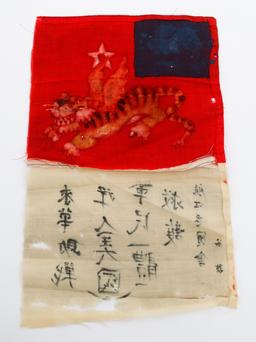 來華助戰
洋人美國
軍民一體
救護
航空委員會